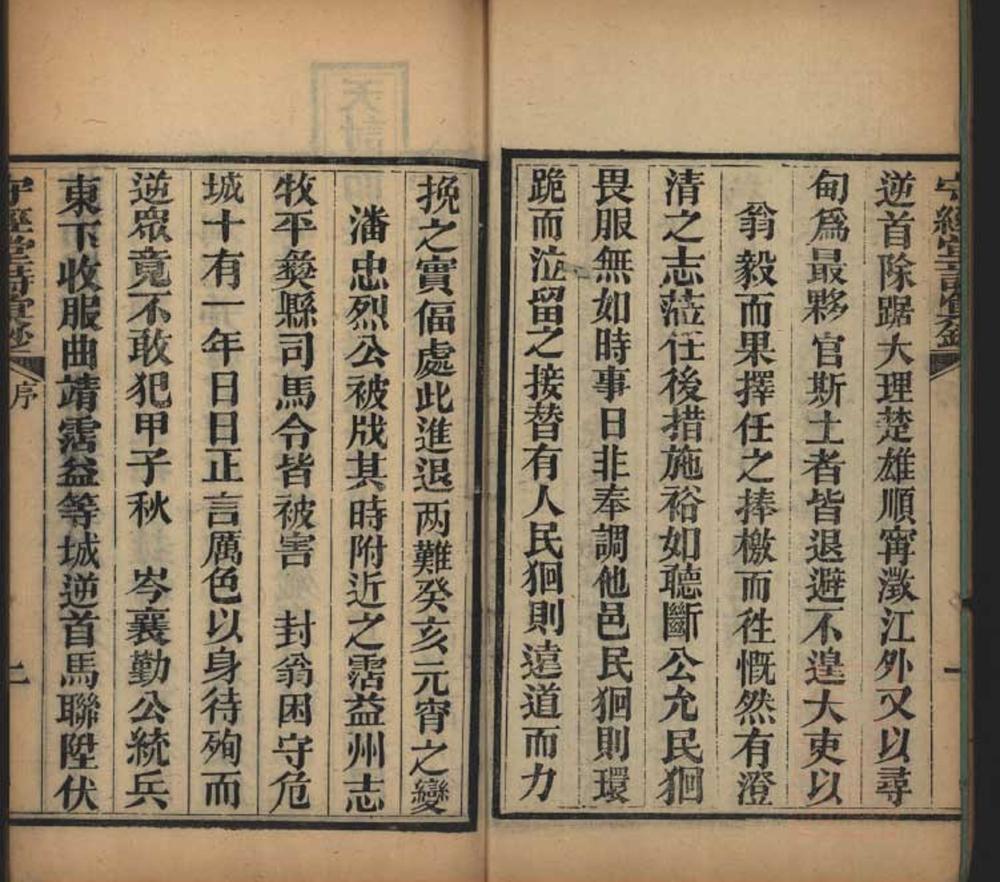 逆首除踞大理楚雄順甯澂江外又以尋
甸爲最夥 官斯土者皆退避不遑大吏以
翁毅而果擇任之捧檄而徃慨然有澄
清之志蒞任後措施裕如聽斷公允民狪
畏服無如時事日非奉調他邑民狪則環
跪而泣留之接替有人民狪則遠道而力
挽之實偪處此進退两難癸亥元宵之變
潘忠烈公被戕其時附近之霑益州志
牧平彝縣司馬令皆被害 封翁困守危
城十有一年日日正言厲色以身待殉而
逆眾竟不敢犯甲子秋 岑襄勤公統兵
東下收服曲靖霑益等城逆首馬聯陞伏
守經堂詩彙鈔
序